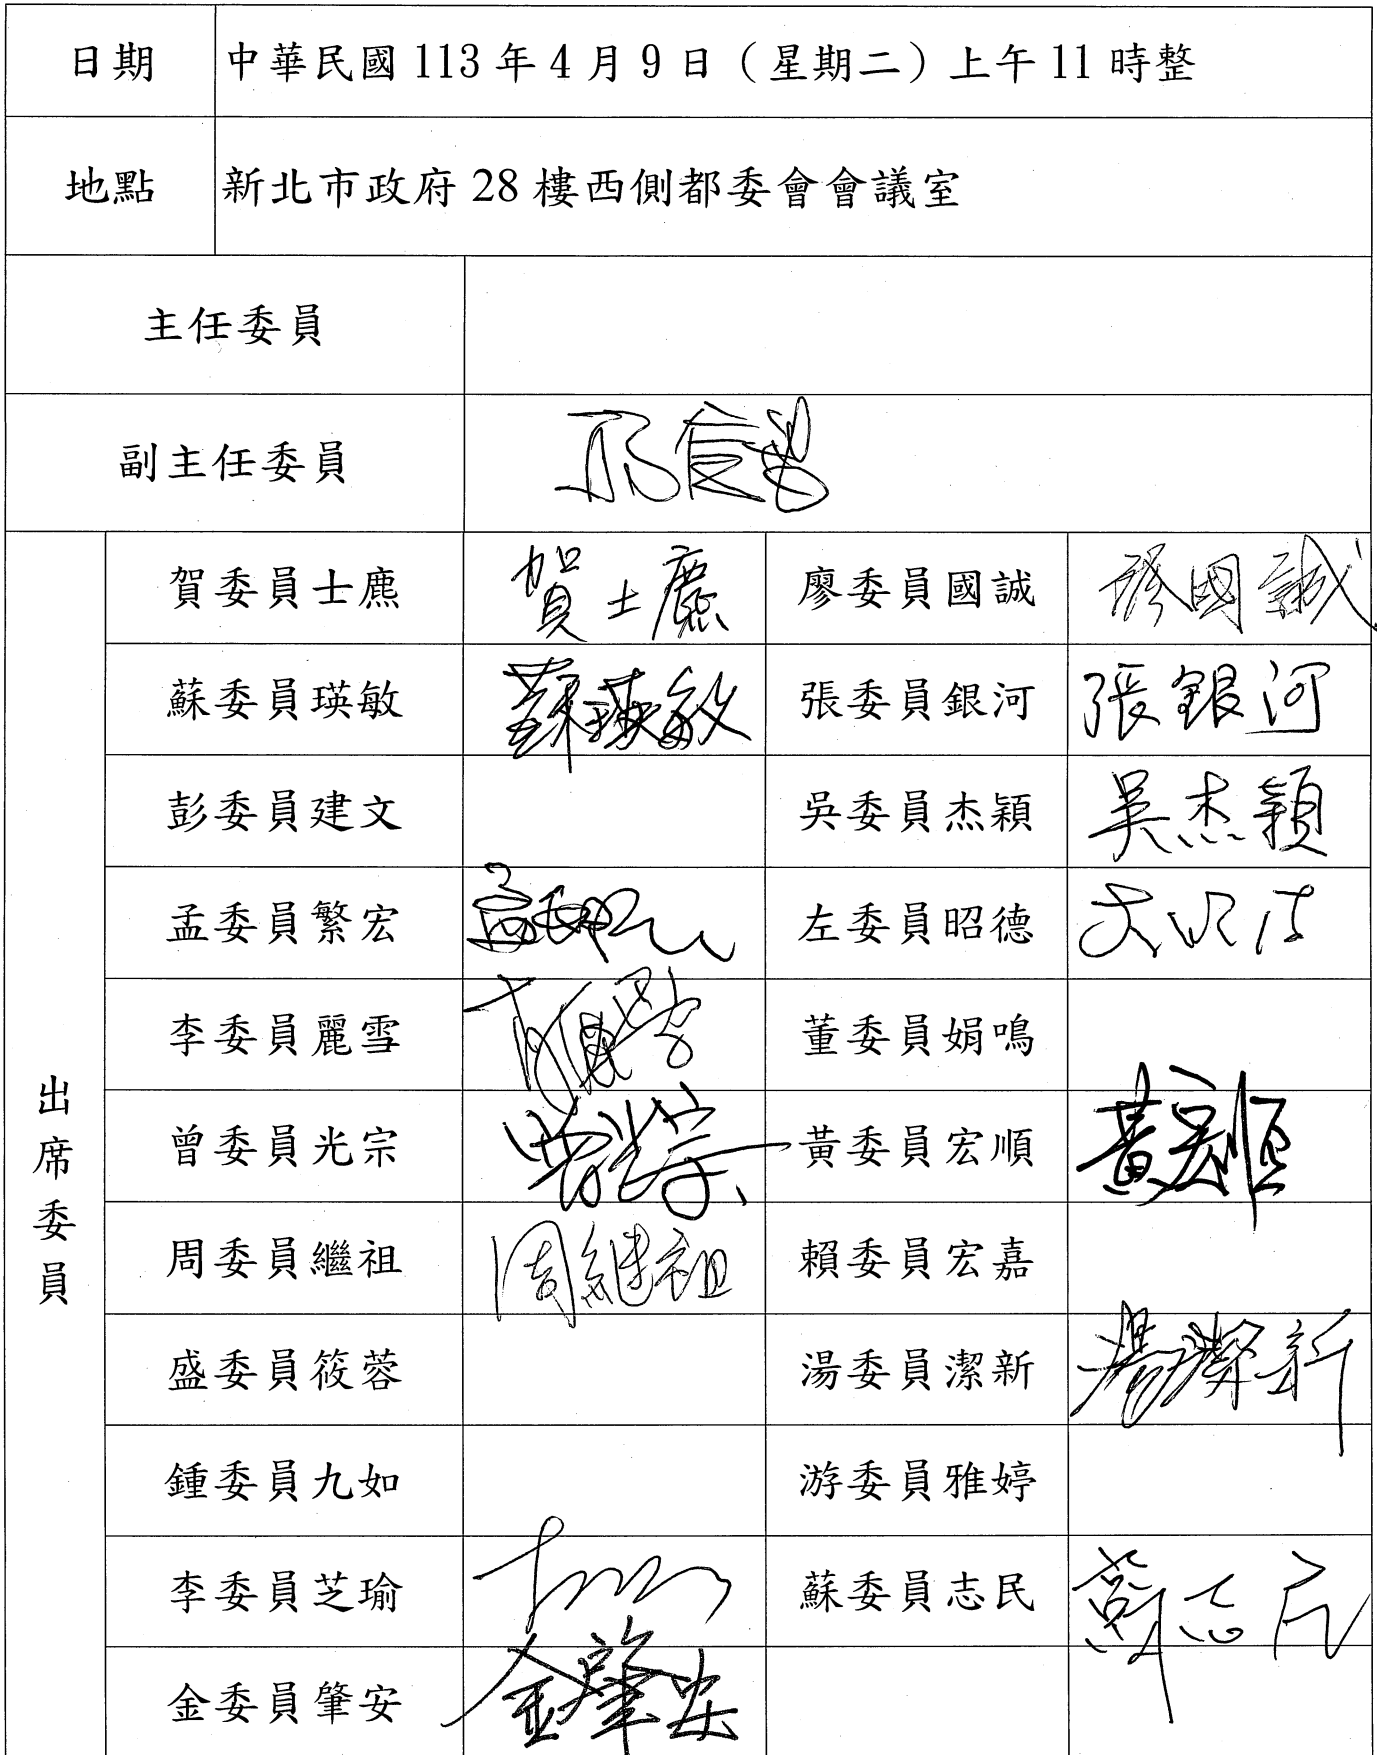 日期 中華民國 113 年 4 月 9 日（星期二）上午 11 時整
地點 新北市政府 28 樓西側都委會會議室
主任委員
副主任委員
出席委員
賀委員士麃 賀士麃 廖委員國誠 廖國誠
蘇委員瑛敏 蘇瑛敏 張委員銀河 張銀河
彭委員建文 吳委員杰穎 吳杰穎
孟委員繁宏 左委員昭德
李委員麗雪 董委員娟鳴
曾委員光宗 曾光宗 黃委員宏順 黃宏順
周委員繼祖 周継祖 賴委員宏嘉
盛委員筱蓉 湯委員潔新 湯潔新
鍾委員九如 游委員雅婷
李委員芝瑜 蘇委員志民 蘇志民
金委員肇安 金肇安